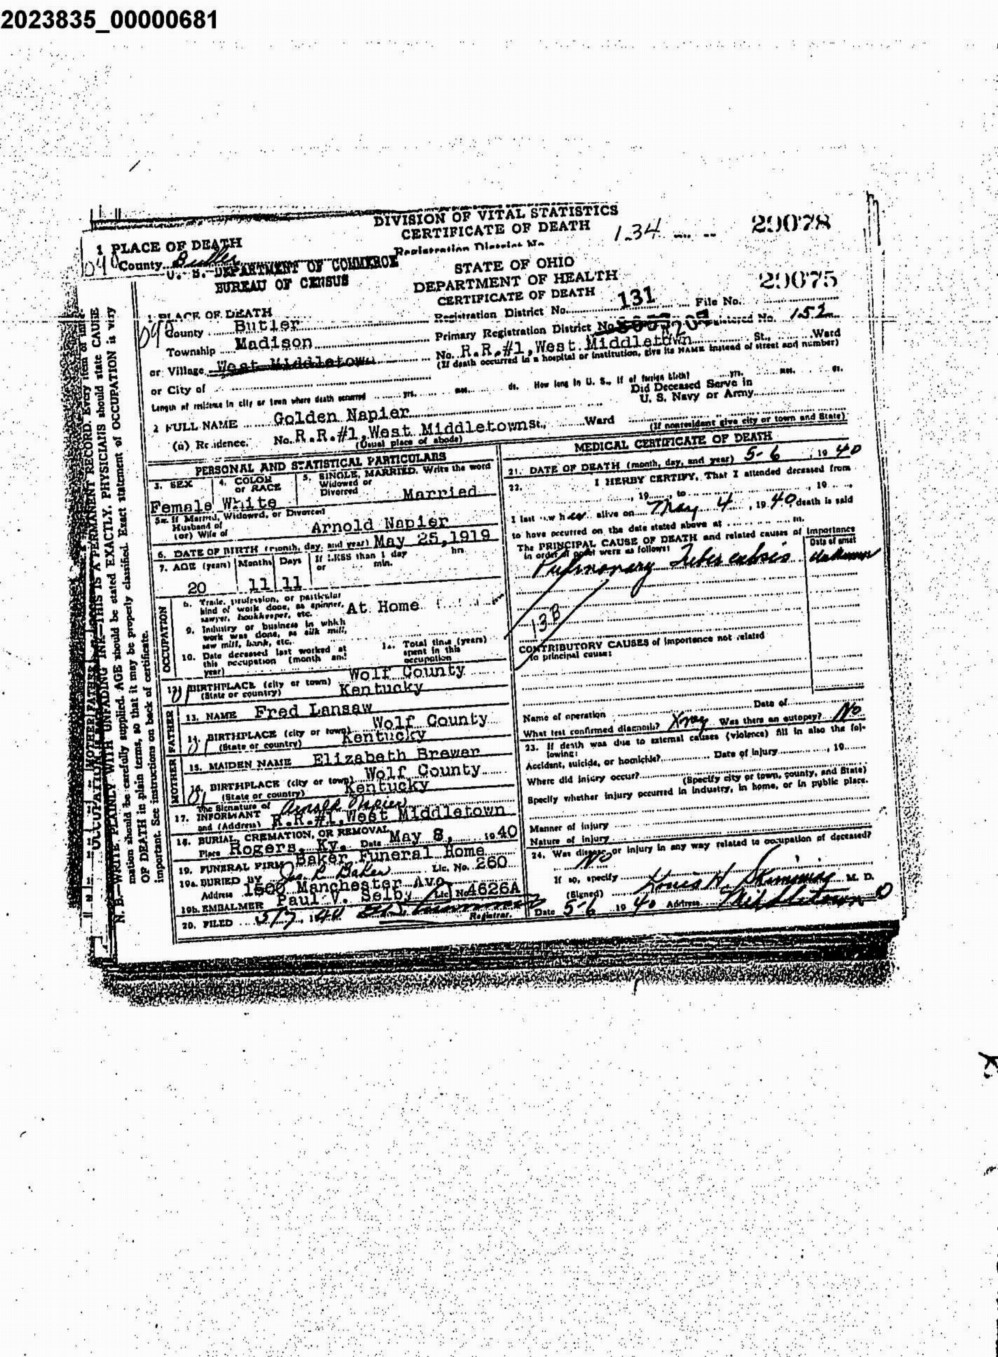 2023835_00000681
DIVISION OF VITAL STATISTICS
CERTIFICATE OF DEATH
1.34
29078
1 PLACE OF DEATH
County Butler
Registration District No
U. S. DEPARTMENT OF COMMERCE
BUREAU OF CENSUS
STATE OF OHIO
DEPARTMENT OF HEALTH
CERTIFICATE OF DEATH
29075
1. PLACE OF DEATH
County Butler
Township Madison
or Village West Middletown
or City of
Registration District No. 131 File No.
Primary Registration District No. Registered No. 152
No. R.R.#1, West Middletown St., Ward
(If death occurred in a hospital or institution, give its NAME instead of street and number)
Length of residence in city or town where death occurred yrs. mos. ds. How long in U. S., if of foreign birth? yrs. mos. ds.
Did Deceased Serve in
U. S. Navy or Army
2 FULL NAME Golden Napier
(a) Residence. No. R.R.#1, West Middletown St., Ward
(Usual place of abode) (If nonresident give city or town and State)
PERSONAL AND STATISTICAL PARTICULARS
3. SEX
Female
4. COLOR
or RACE
White
5. SINGLE, MARRIED. Write the word
Widowed or
Divorced
Married
5a. If Married, Widowed, or Divorced
Husband of
(or) Wife of
Arnold Napier
6. DATE OF BIRTH (month, day, and year) May 25, 1919
7. AGE (years) Months Days If LESS than 1 day
hn
or min.
20 11 11
OCCUPATION
8. Trade, profession, or particular
kind of work done, as spinner,
sawyer, bookkeeper, etc.
At Home
9. Industry or business in which
work was done, as silk mill,
saw mill, bank, etc.
10. Date deceased last worked at
this occupation (month and
year)
Total time (years)
spent in this
occupation
BIRTHPLACE (city or town) Wolf County
(State or country) Kentucky
FATHER
13. NAME Fred Lansaw
14. BIRTHPLACE (city or town) Wolf County
(State or country) Kentucky
MOTHER
15. MAIDEN NAME Elizabeth Brewer
BIRTHPLACE (city or town) Wolf County
(State or country) Kentucky
17. The Signature of
INFORMANT Arnold Napier
and (Address) R.R.#1, West Middletown
18. BURIAL, CREMATION, OR REMOVAL
Place Rogers, Ky. Date May 8, 1940
19. FUNERAL FIRM Baker Funeral Home
19a. BURIED BY Jas. R Baker Lic. No. 260
Address 1500 Manchester Ave
19b. EMBALMER Paul V. Selby Lic No 4626A
20. FILED 5/7 1940
Registrar.
MEDICAL CERTIFICATE OF DEATH
21. DATE OF DEATH (month, day, and year) 5-6, 1940
22. I HEREBY CERTIFY, That I attended deceased from
, 19 , to , 19
I last saw her alive on May 4, 1940 death is said
to have occurred on the date stated above at m.
The PRINCIPAL CAUSE OF DEATH and related causes of importance
in order of onset were as follows:
Date of onset
Pulmonary Tuberculosis unknown
13B
CONTRIBUTORY CAUSES of importance not related
to principal cause:
Name of operation Date of
What test confirmed diagnosis? Xray Was there an autopsy? No
23. If death was due to external causes (violence) fill in also the fol-
lowing:
Accident, suicide, or homicide? Date of injury , 19
Where did injury occur?
(Specify city or town, county, and State)
Specify whether injury occurred in industry, in home, or in public place.
Manner of injury
Nature of injury
24. Was disease or injury in any way related to occupation of deceased?
No
If so, specify
(Signed) Louis H M. D.
Date 5-6 1940 Address Middletown O
N. B.—WRITE PLAINLY WITH UNFADING INK—THIS IS A PERMANENT RECORD. Every item of infor-
mation should be carefully supplied. AGE should be stated EXACTLY. PHYSICIANS should state CAUSE
OF DEATH in plain terms, so that it may be properly classified. Exact statement of OCCUPATION is very
important. See instructions on back of certificate.